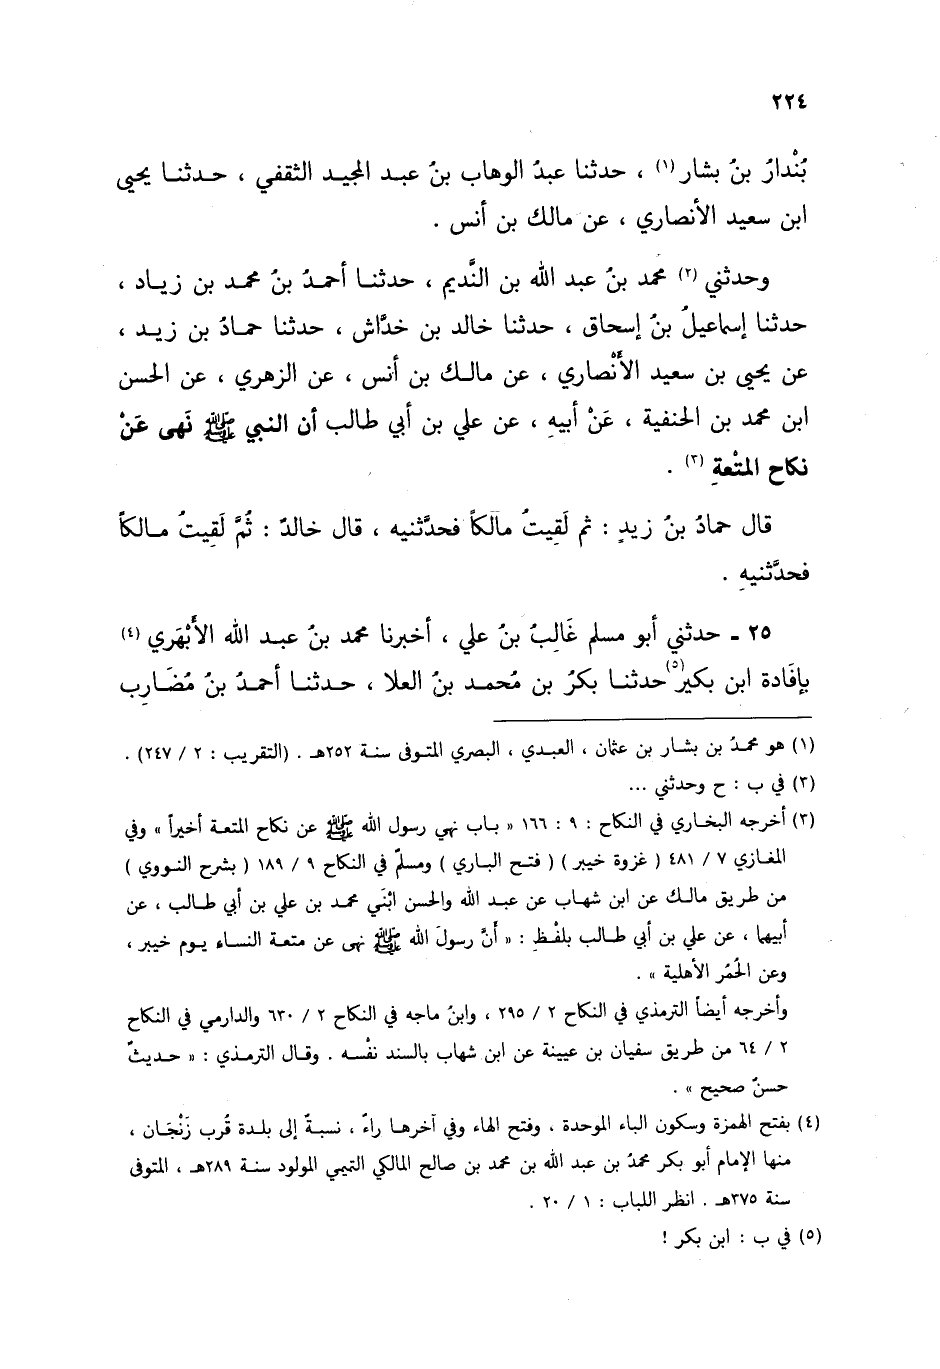 ٢٢٤
بُنْدارُ بنُ بشار (١) ، حدثنا عبدُ الوهاب بنُ عبد المجيد الثقفي ، حدثنا يحيى
ابن سعيد الأنصاري ، عن مالك بن أنس .
وحدثني (٢) محمد بنُ عبد الله بن النَّديم ، حدثنا أحمدُ بنُ محمد بن زياد ،
حدثنا إسماعيلُ بنُ إسحاق ، حدثنا خالد بن خدَّاش ، حدثنا حمادُ بن زيد ،
عن يحيى بن سعيد الأَنْصاري ، عن مالك بن أنس ، عن الزهري ، عن الحسن
ابن محمد بن الحنفية ، عَنْ أبيهِ ، عن علي بن أبي طالب أن النبي ﷺ نَهى عَنْ
نكاح المتْعةِ (٣) .
قال حمادُ بنُ زيدٍ : ثم لَقِيتُ مالكاً فحدَّثنيه ، قال خالدٌ : ثُمَّ لَقِيتُ مالكاً
فحدَّثنيهِ .
٢٥ ـ حدثني أبو مسلم غَالِبُ بنُ علي ، أخبرنا محمد بنُ عبد الله الأَبْهَري (٤)
بإفَادة ابن بكير(٥) حدثنا بكرُ بن مُحمد بنُ العلا ، حدثنا أحمدُ بنُ مُضَارِب
(١) هو محمدُ بن بشار بن عثمان ، العبدي ، البصري المتوفى سنة ٢٥٢هـ . (التقريب : ٢ / ٢٤٧) .
(٢) في ب : ح وحدثني ...
(٣) أخرجه البخاري في النكاح : ٩ : ١٦٦ « باب نهي رسول الله ﷺ عن نكاح المتعة أخيراً » وفي
المغازي ٧ / ٤٨١ ( غزوة خيبر ) ( فتح الباري ) ومسلمٌ في النكاح ٩ / ١٨٩ ( بشرح النووي )
من طريق مالك عن ابن شهاب عن عبد الله والحسن ابْنَي محمد بن علي بن أبي طالب ، عن
أبيهما ، عن علي بن أبي طالب بلفظِ : « أَنَّ رسولَ الله ﷺ نهى عن متعة النساء يوم خيبر ،
وعن الحُمُر الأهلية » .
وأخرجه أيضاً الترمذي في النكاح ٢ / ٢٩٥ ، وابنُ ماجه في النكاح ٢ / ٦٣٠ والدارمي في النكاح
٢ / ٦٤ من طريق سفيان بن عيينة عن ابن شهاب بالسند نفْسه . وقال الترمذي : « حديثٌ
حسنٌ صحيح » .
(٤) بفتح الهمزة وسكون الباء الموحدة ، وفتح الهاء وفي آخرها راءٌ ، نسبةً إلى بلدة قُرب زَنْجَان ،
منها الإمام أبو بكر محمدُ بن عبد الله بن محمد بن صالح المالكي التميمي المولود سنة ٢٨٩هـ ، المتوفى
سنة ٣٧٥هـ . انظر اللباب : ١ / ٢٠ .
(٥) في ب : ابن بكر !